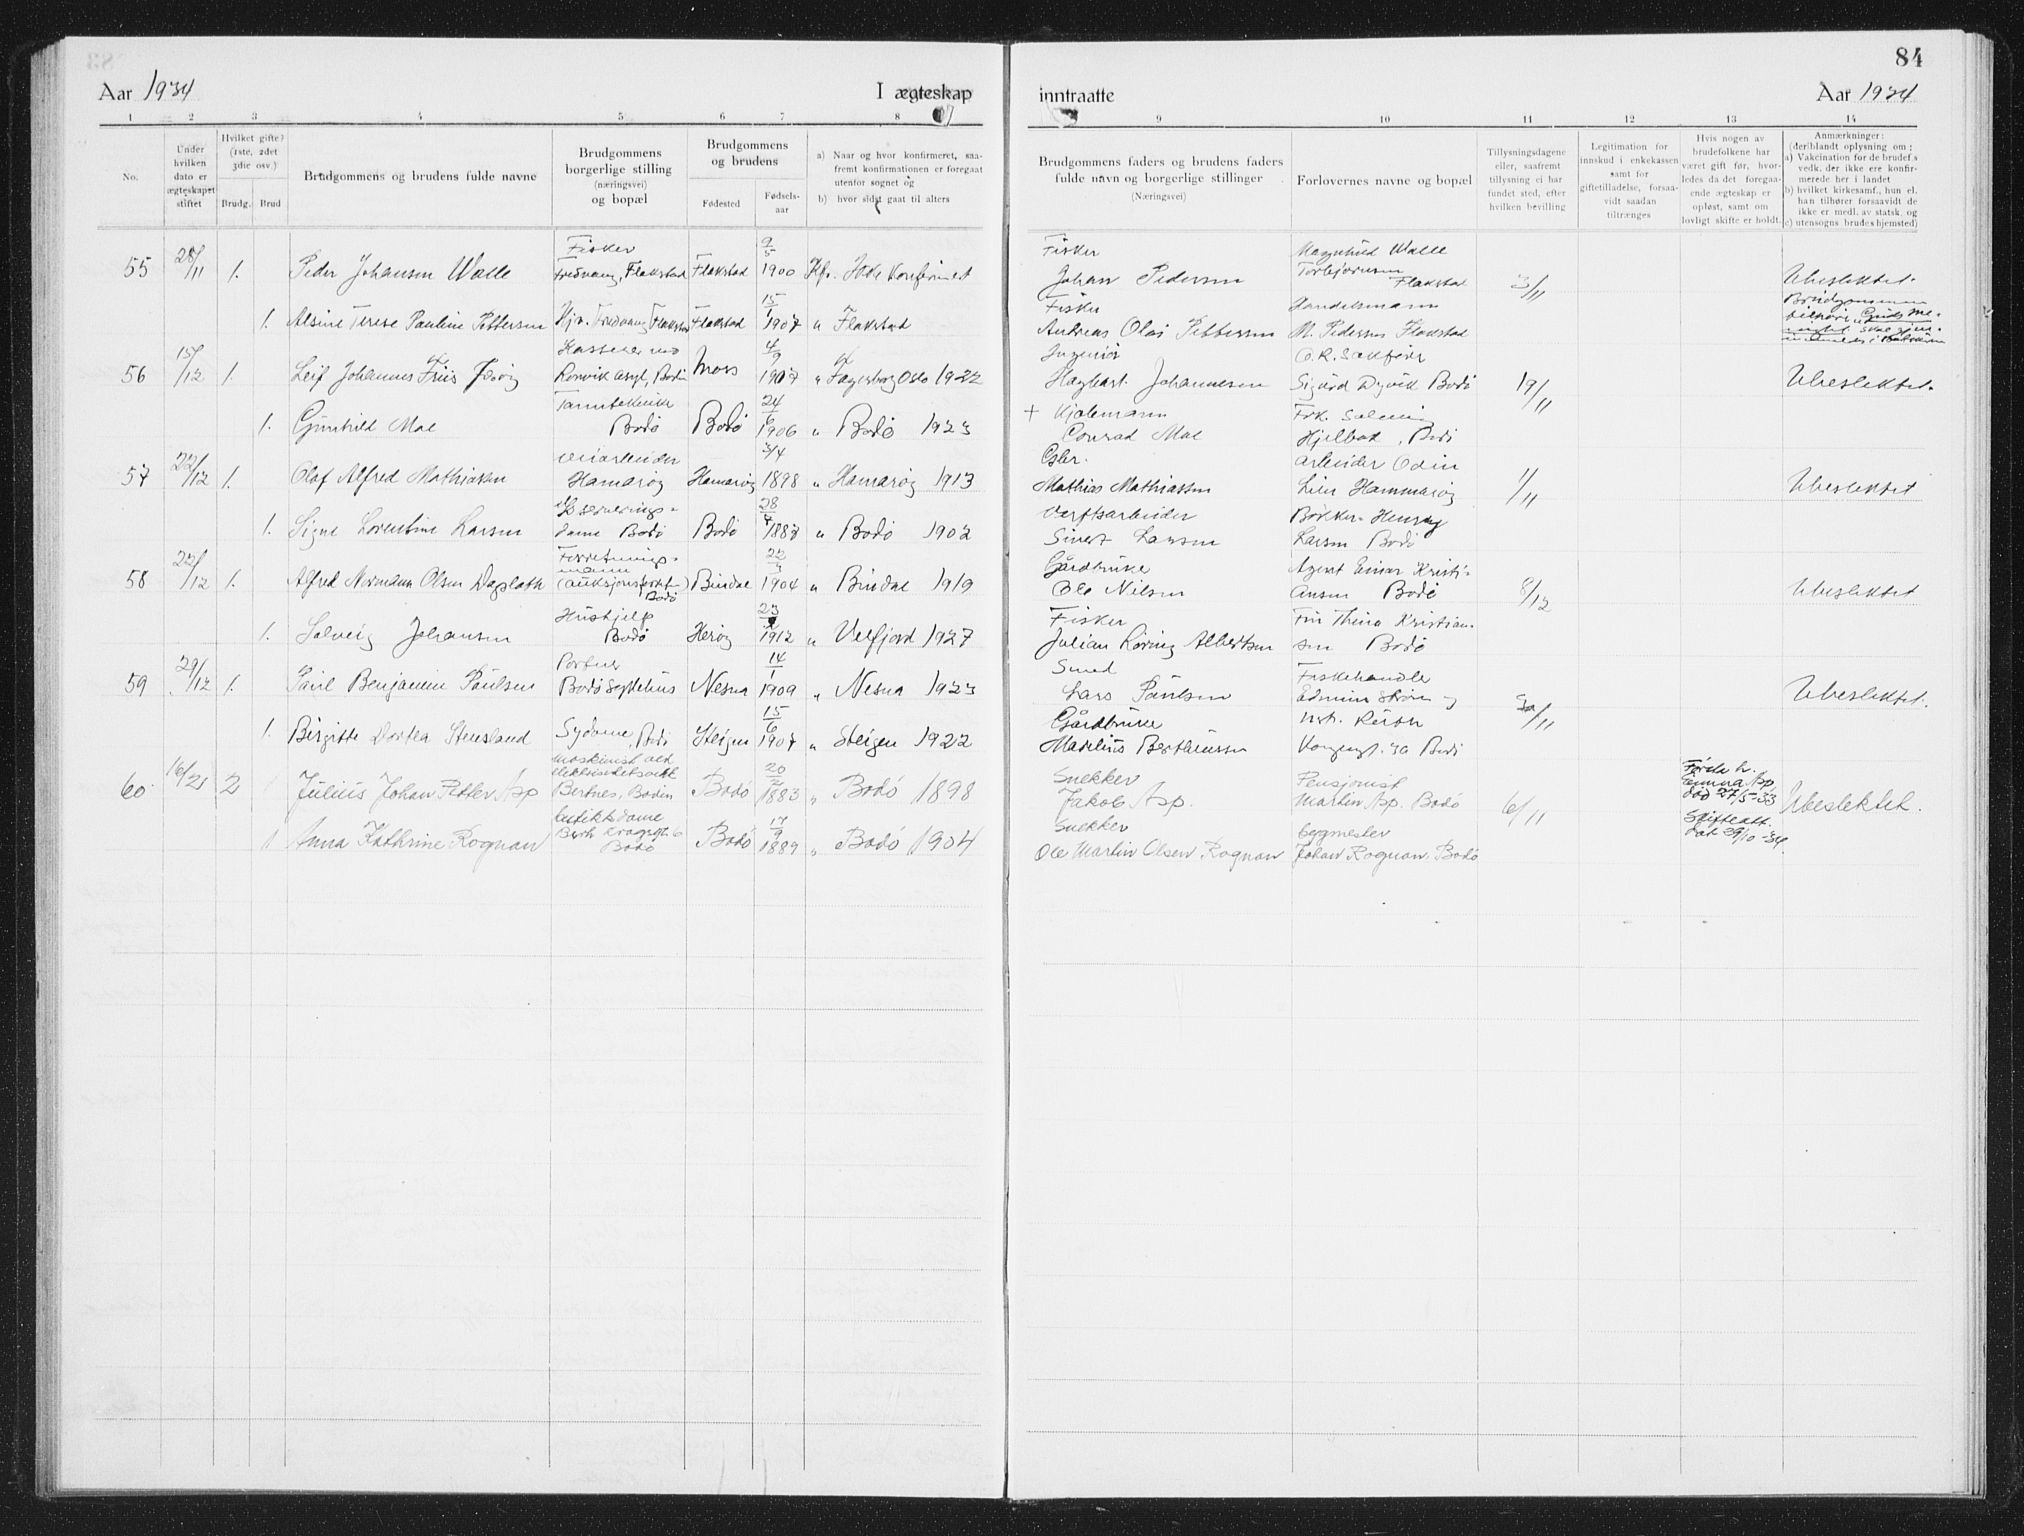 84
Aar 1934 I ægteskap inntraatte Aar 1934
1 2 3 4 5 6 7 8 9 10 11 12 13 14
No.
Under hvilken dato er ægteskapet stiftet
Hvilket gifte? (1ste, 2det 3die osv.)
Brudg. Brud
Brudgommens og brudens fulde navne
Brudgommens borgerlige stilling (næringsvei) og bopæl
Brudgommens og brudens
Fødested Fødsels-aar
a) Naar og hvor konfirmeret, saafremt konfirmationen er foregaat utenfor sognet og
b) hvor sidst gaat til alters
Brudgommens faders og brudens faders fulde navn og borgerlige stillinger (Næringsvei)
Forlovernes navne og bopæl
Tillysningsdagene eller, saafremt tillysning ei har fundet sted, efter hvilken bevilling
Legitimation for innskud i enkekassen samt for giftetilladelse, forsaavidt saadan tiltrænges
Hvis nogen av brudefolkene har været gift før, hvorledes da det foregaaende ægteskap er opløst, samt om lovligt skifte er holdt.
Anmærkninger: (deriblandt oplysning om:
a) Vakcination for de brudef.s vedk. der ikke ere konfirmerede her i landet
b) hvilket kirkesamf., hun el. han tilhører forsaavidt de ikke er medl. av statsk. og
c) utensogns brudes hjemsted)
55 28/11 1. Peder Johansen Walle Fisker Fredvang, Flakstad Flakstad 9/5 1900 Kfr. Ikke konfirmert Fisker Johan Pedersen Magnhild Walle Torbjørnsen Flakstad 3/11 Ubeslektet.
1. Alsine Terese Pauline Pettersen Hjv. Fredvang, Flakstad Flakstad 15/1 1907 " Flakstad Fisker Andreas Olai Pettersen Handelsmann M. Pedersen Flakstad Brudgommen tilhører
56 15/12 1. Leif Johannes Friis Kasserer ved Rønvik asyl, Bodin Moss 4/9 1907 " Fagerborg Oslo 1922 Ingeniør Hagbart Johannesen O.R. sakfører Sigurd Dyvik Bodø 19/11 Ubeslektet.
1. Gunhild Moe Tanntekniker Bodø Bodø 24/6 1906 " Bodø 1923 + Kjøbmann Conrad Moe Frk. Solveig Hjelbak, Bodø
57 22/12 1. Olaf Alfred Mathiasen Veiarbeider Hamarøy Hamarøy 3/4 1898 " Hamarøy 1913 Gbr. Mathias Mathiassen arbeider Odin Lien Hammarøy 1/11 Ubeslektet
1. Signe Lorentine Larsen Serverings-dame Bodø Bodø 28 1887 " Bodø 1902 Verftsarbeider Sivert Larsen Bøkker Henry Larsen Bodø
58 22/12 1. Alfred Normann Olsen Dagslath Forretnings-mann Bodø Bindal 22/3 1904 " Bindal 1919 Gårdbruker Ole Nilsen Agent Einar Kristi-ansen Bodø 8/12 Ubeslektet
1. Solveig Johansen Hushjelp Bodø Herøy 23 1912 " Velfjord 1927 Fisker Julian Loring Albertsen Fru Thina Kristian-sen Bodø
59 29/12 1. Paul Benjamin Paulsen Portner Bodø Sykehus Nesna 14/1 1909 " Nesna 1923 Smed Lars Paulsen Fiskehandler Edmun Strøm og 30/11 Ubeslektet.
1. Birgitte Dortea Stensland Sydame, Bodø Steigen 15/6 1907 " Steigen 1922 Gårdbruker Madelius Bertheussen Kongensgt. 30 Bodø
60. 16/21 2 Julius Johan Petter Asp Maskinist ved elektrisitetsverk Bertnes, Bodin Bodø 20/2 1883 " Bodø 1898 Snekker Jakob Asp. Pensjonist Martin Asp. Bodø 6/11 Første h. Emma Asp død 27/5-33 Skifteatt. dat 29/10-34. Ubeslektet.
1 Anna Kathrine Rognan butikkdame Bodø Bodø 17/9 1889 " Bodø 1904 Snekker Ole Martin Olsen Rognan bygmester Johan Rognan, Bodø